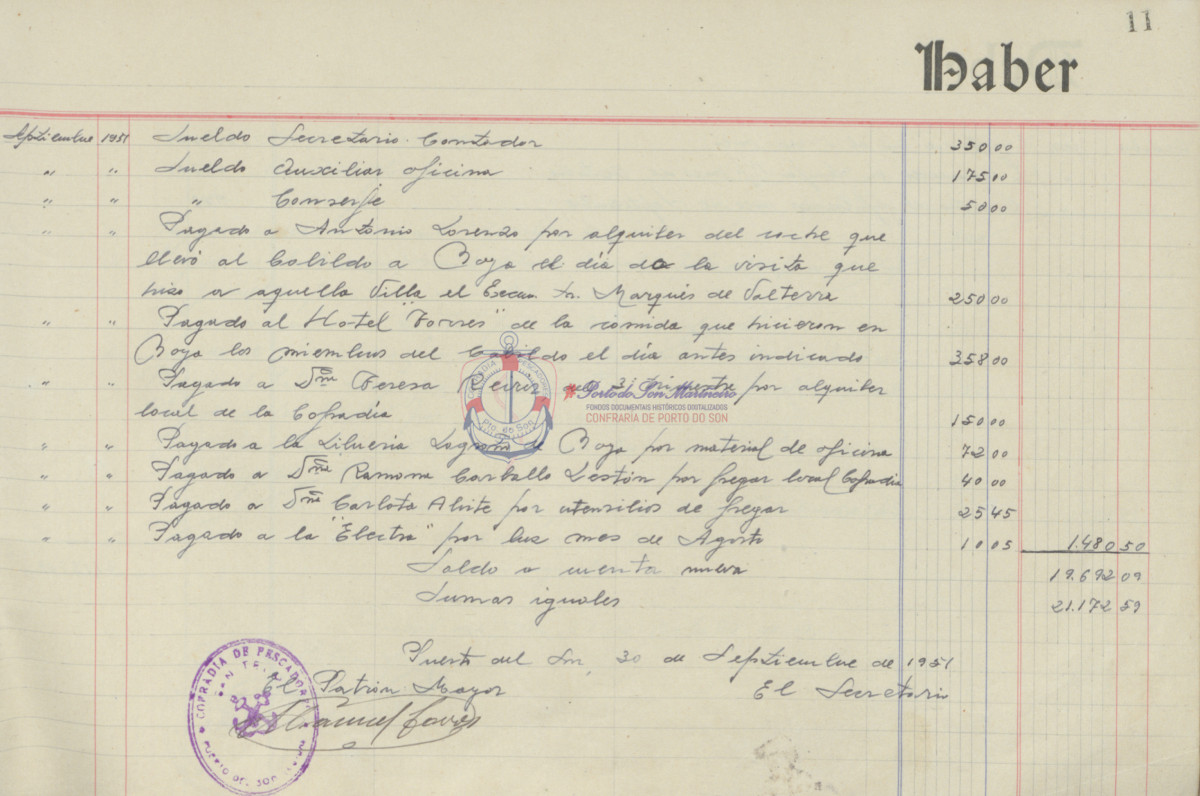 11
Haber
Septiembre 1951 Sueldo Secretario Contador 350 00
" " Sueldo Auxiliar oficina 175 00
" " " Conserje 50 00
" " Pagado a Antonio Lorenzo por alquiler del coche que
llevó al Cabildo a Noya el día de la visita que
hizo a aquella Villa el Excmo. Sr. Marqués de Valterra 250 00
" " Pagado al Hotel "Torres" de la comida que hicieron en
Noya los miembros del Cabildo el día antes indicado 358 00
" " Pagado a Dña Teresa 3º trimestre por alquiler
local de la Cofradía 150 00
" " Pagado a la Librería de Noya por material de oficina 72 00
" " Pagado a Dña Ramona Carballo Lestón por fregar local Cofradía 40 00
" " Pagado a Dña Carlota Alvite por utensilios de fregar 25 45
" " Pagado a la "Electra" por luz mes de Agosto 10 05 1.480 50
Saldo a cuenta nueva 19.692 09
Sumas iguales 21.172 59
Puerto del Son, 30 de Septiembre de 1951
El Patrón Mayor El Secretario
Manuel
COFRADIA DE PESCADORES
PUERTO DEL SON
COFRADIA PESCADORES
Pto. do Son
Porto do Son Marineiro
FONDOS DOCUMENTAIS HISTÓRICOS DIXITALIZADOS
CONFRARÍA DE PORTO DO SON